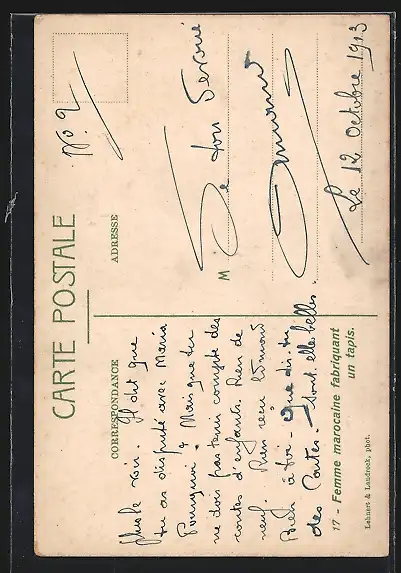 CARTE POSTALE
CORRESPONDANCE
plus le voir. Il dit que
tu as disputé avec Maria
Pourquoi ? Mais que tu
ne dois pas tenir compte des
contes d'enfants. Rien de
neuf. Rien reçu
Bien à toi - Que dis-tu
des Cartes. Sont elles belles.
17 - Femme marocaine fabriquant
un tapis.
Lehnert & Landrock, phot.
ADRESSE
No. 2
M
De ton Devoué
Le 12 Octobre 1913